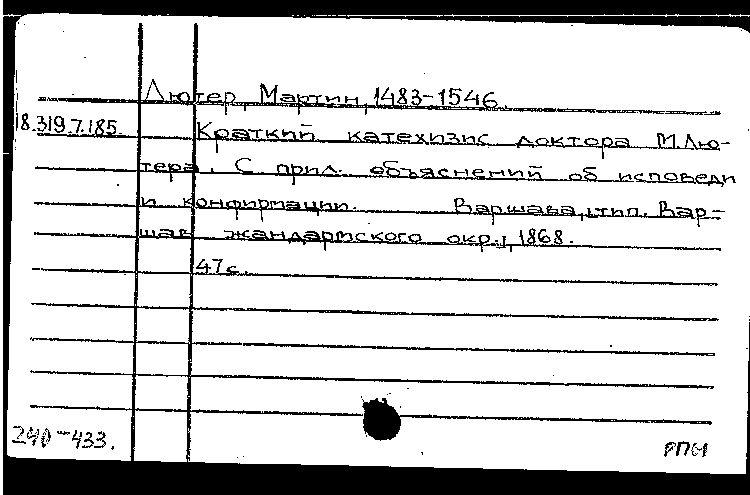 Лютер, Мартин, 1483-1546.
18.319.7.185. Краткий катехизис доктора М.Лю-
тера. С прил. объяснений об исповеди
и конфирмации. Варшава, тип. Вар-
шав. жандармского окр., 1868.
47 с.
240-433.